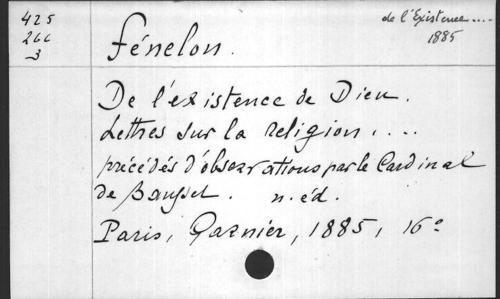 425
266
3
de l'Existence....
1885
Fénelon.
De l'existence de Dieu.
Lettres sur la religion....
précédés d'observations par le Cardinal
de Bausset. n. éd.
Paris, Garnier, 1885, 16°